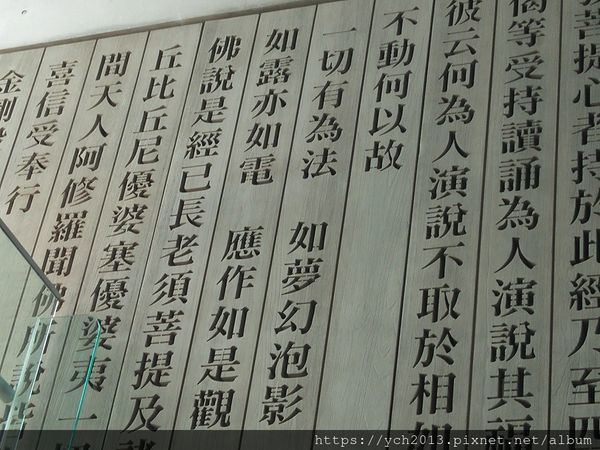 菩提心者持於此經乃至四
偈等受持讀誦為人演說其福
彼云何為人演說不取於相如
不動何以故
一切有為法　如夢幻泡影
如露亦如電　應作如是觀
佛說是經已長老須菩提及諸
丘比丘尼優婆塞優婆夷一切
間天人阿修羅聞佛所說皆
喜信受奉行
金剛
https://ych2013.pixnet.net/album